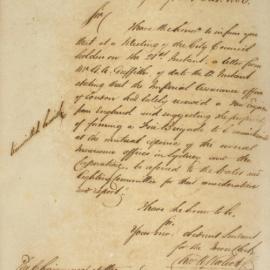 Sir
I have the honor to inform you
that at a Meeting of the City Council
holden on the 21st Instant, a letter from
Mr G. A. Griffiths of date the Instant
stating that the Imperial Insurance office
of London had lately received a Fire Engine
from England and suggesting the propriety
of forming a Fire Brigade to be maintained
at the mutual expense of the several
Insurance offices in Sydney and the
Corporation, be referred to the and
Lighting Committee for their consideration
and report.
I have the honor to be,
Sir
Your most obedient Servant
for the Town Clerk